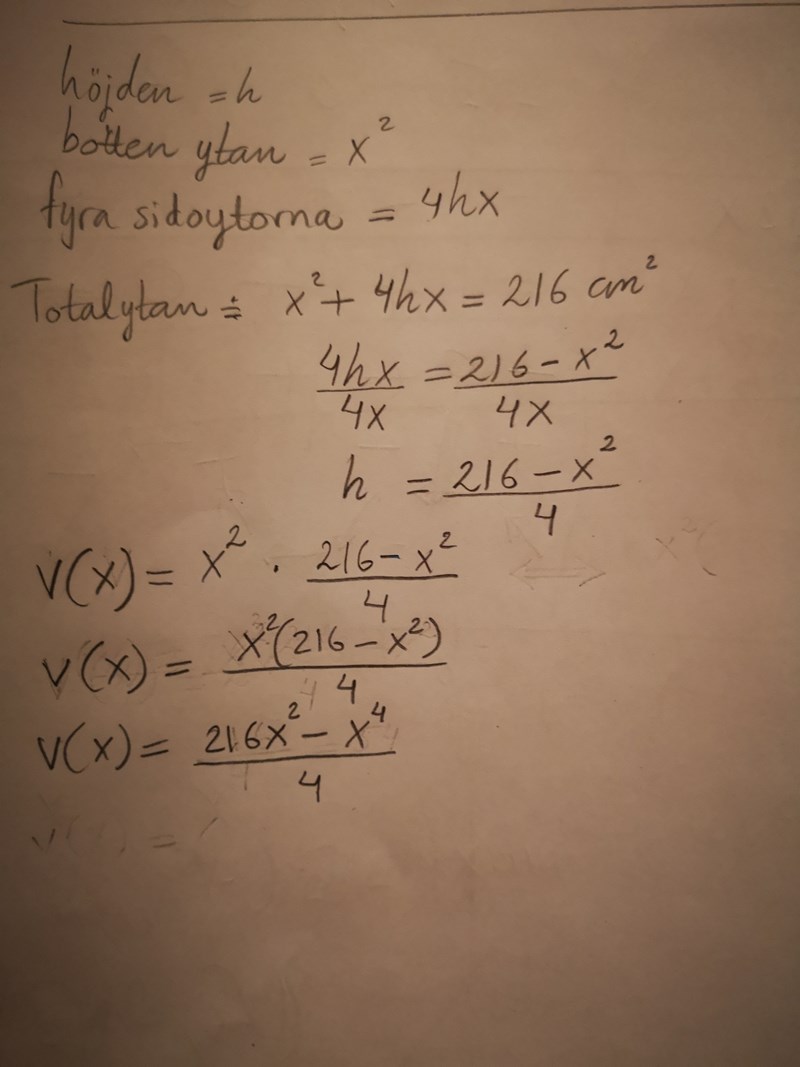 höjden = h
botten ytan = x²
fyra sidoytorna = 4hx
Totalytan = x² + 4hx = 216 cm²
4hx/4x = (216 - x²)/4x
h = (216 - x²)/4
V(x) = x² · (216 - x²)/4
V(x) = x²(216 - x²)/4
V(x) = (216x² - x⁴)/4